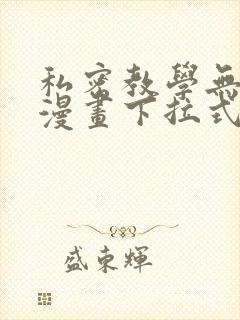 私密教學無
漫畫下拉式
盛東輝